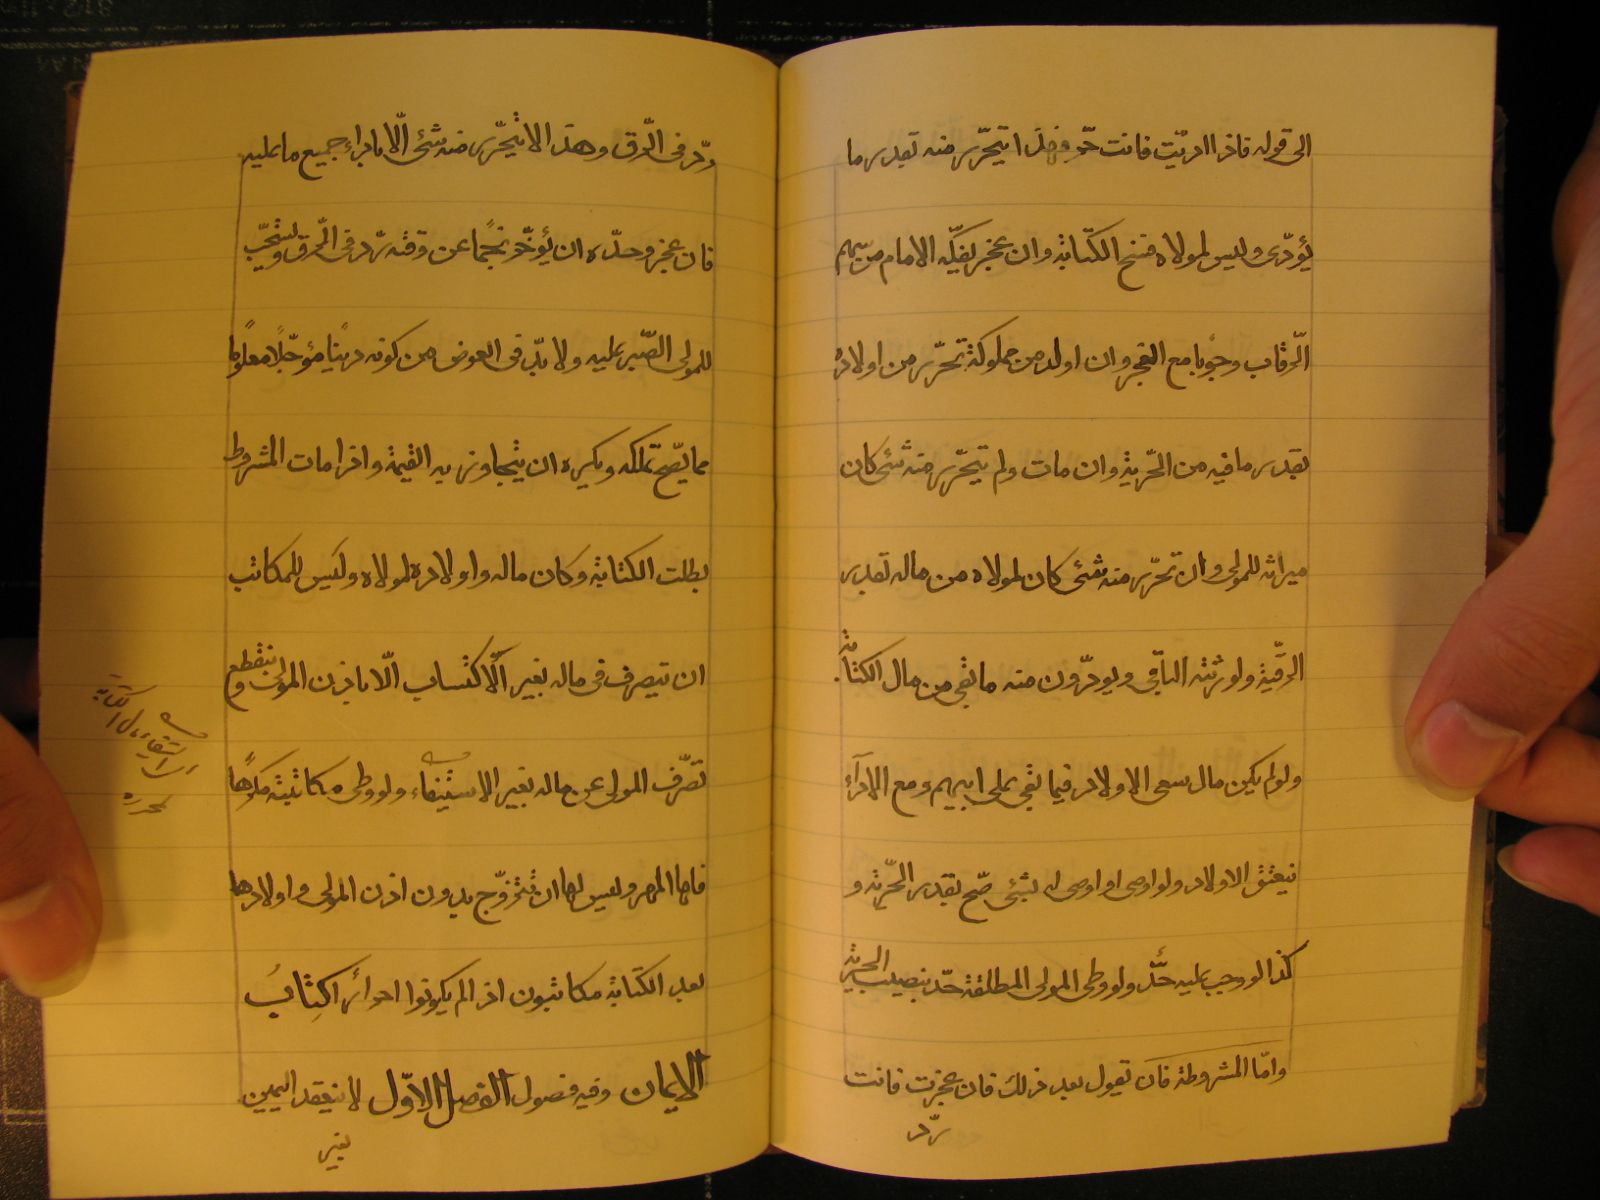 الى قوله فاذا ادّيت فانت حرّ فهذا يتحرّر منه بقدر ما
يؤدّى وليس لمولاه فسخ الكتابة وان عجز يفكّه الامام من سهم
الرّقاب وجوبا مع العجز وان اولد من مملوكته تحرّر من اولاده
بقدر ما فيه من الحرّية وان مات ولم يتحرّر منه شئ كان
ميراثه للمولى وان تحرّر منه شئ كان لمولاه من ماله بقدر
الرقّية ولورثته الباقى ويودّون منه ما بقى من مال الكتابة
ولو لم يكن مال سعى الاولاد فيما بقى على ابيهم ومع الادآء
ينعتق الاولاد ولو اوصى او اوصى له بشئ صحّ بقدر الحرّية و
كذا لو وجب عليه حدّ ولو وطى المولى المطلقة حدّ بنصيب الحرّية
وامّا المشروطة فان يقول بعد ذلك فان عجزت فانت
ردّ
ردّ فى الرّق وهذا لا يتحرّر منه شئ الّا باداء جميع ما عليه
فان عجز وحدّه ان يؤخّر نجمًا عن وقته ردّ فى الرّق ويستحبّ
للمولى الصّبر عليه ولا بدّ فى العوض من كونه دينًا مؤجّلًا معلومًا
مما يصّح تملكه ويكره ان يتجاوز به القيمة واذا مات المشروط
بطلت الكتابة وكان ماله واولاده لمولاه وليس للمكاتب
ان يتصرف فى ماله بغير الاكتساب الّا باذن المولى وينقطع
تصّرف المولى عن ماله بغير الاستيفاء ولو وطى مكاتبته مكرهًا
فلها المهر وليس لها ان تتزوّج بدون اذن المولى واولادها
بعد الكتابة مكاتبون اذا لم يكونوا احرارا كتابُ
الايمان وفيه فصول الفصل الاوّل لا ينعقد اليمين
بغير